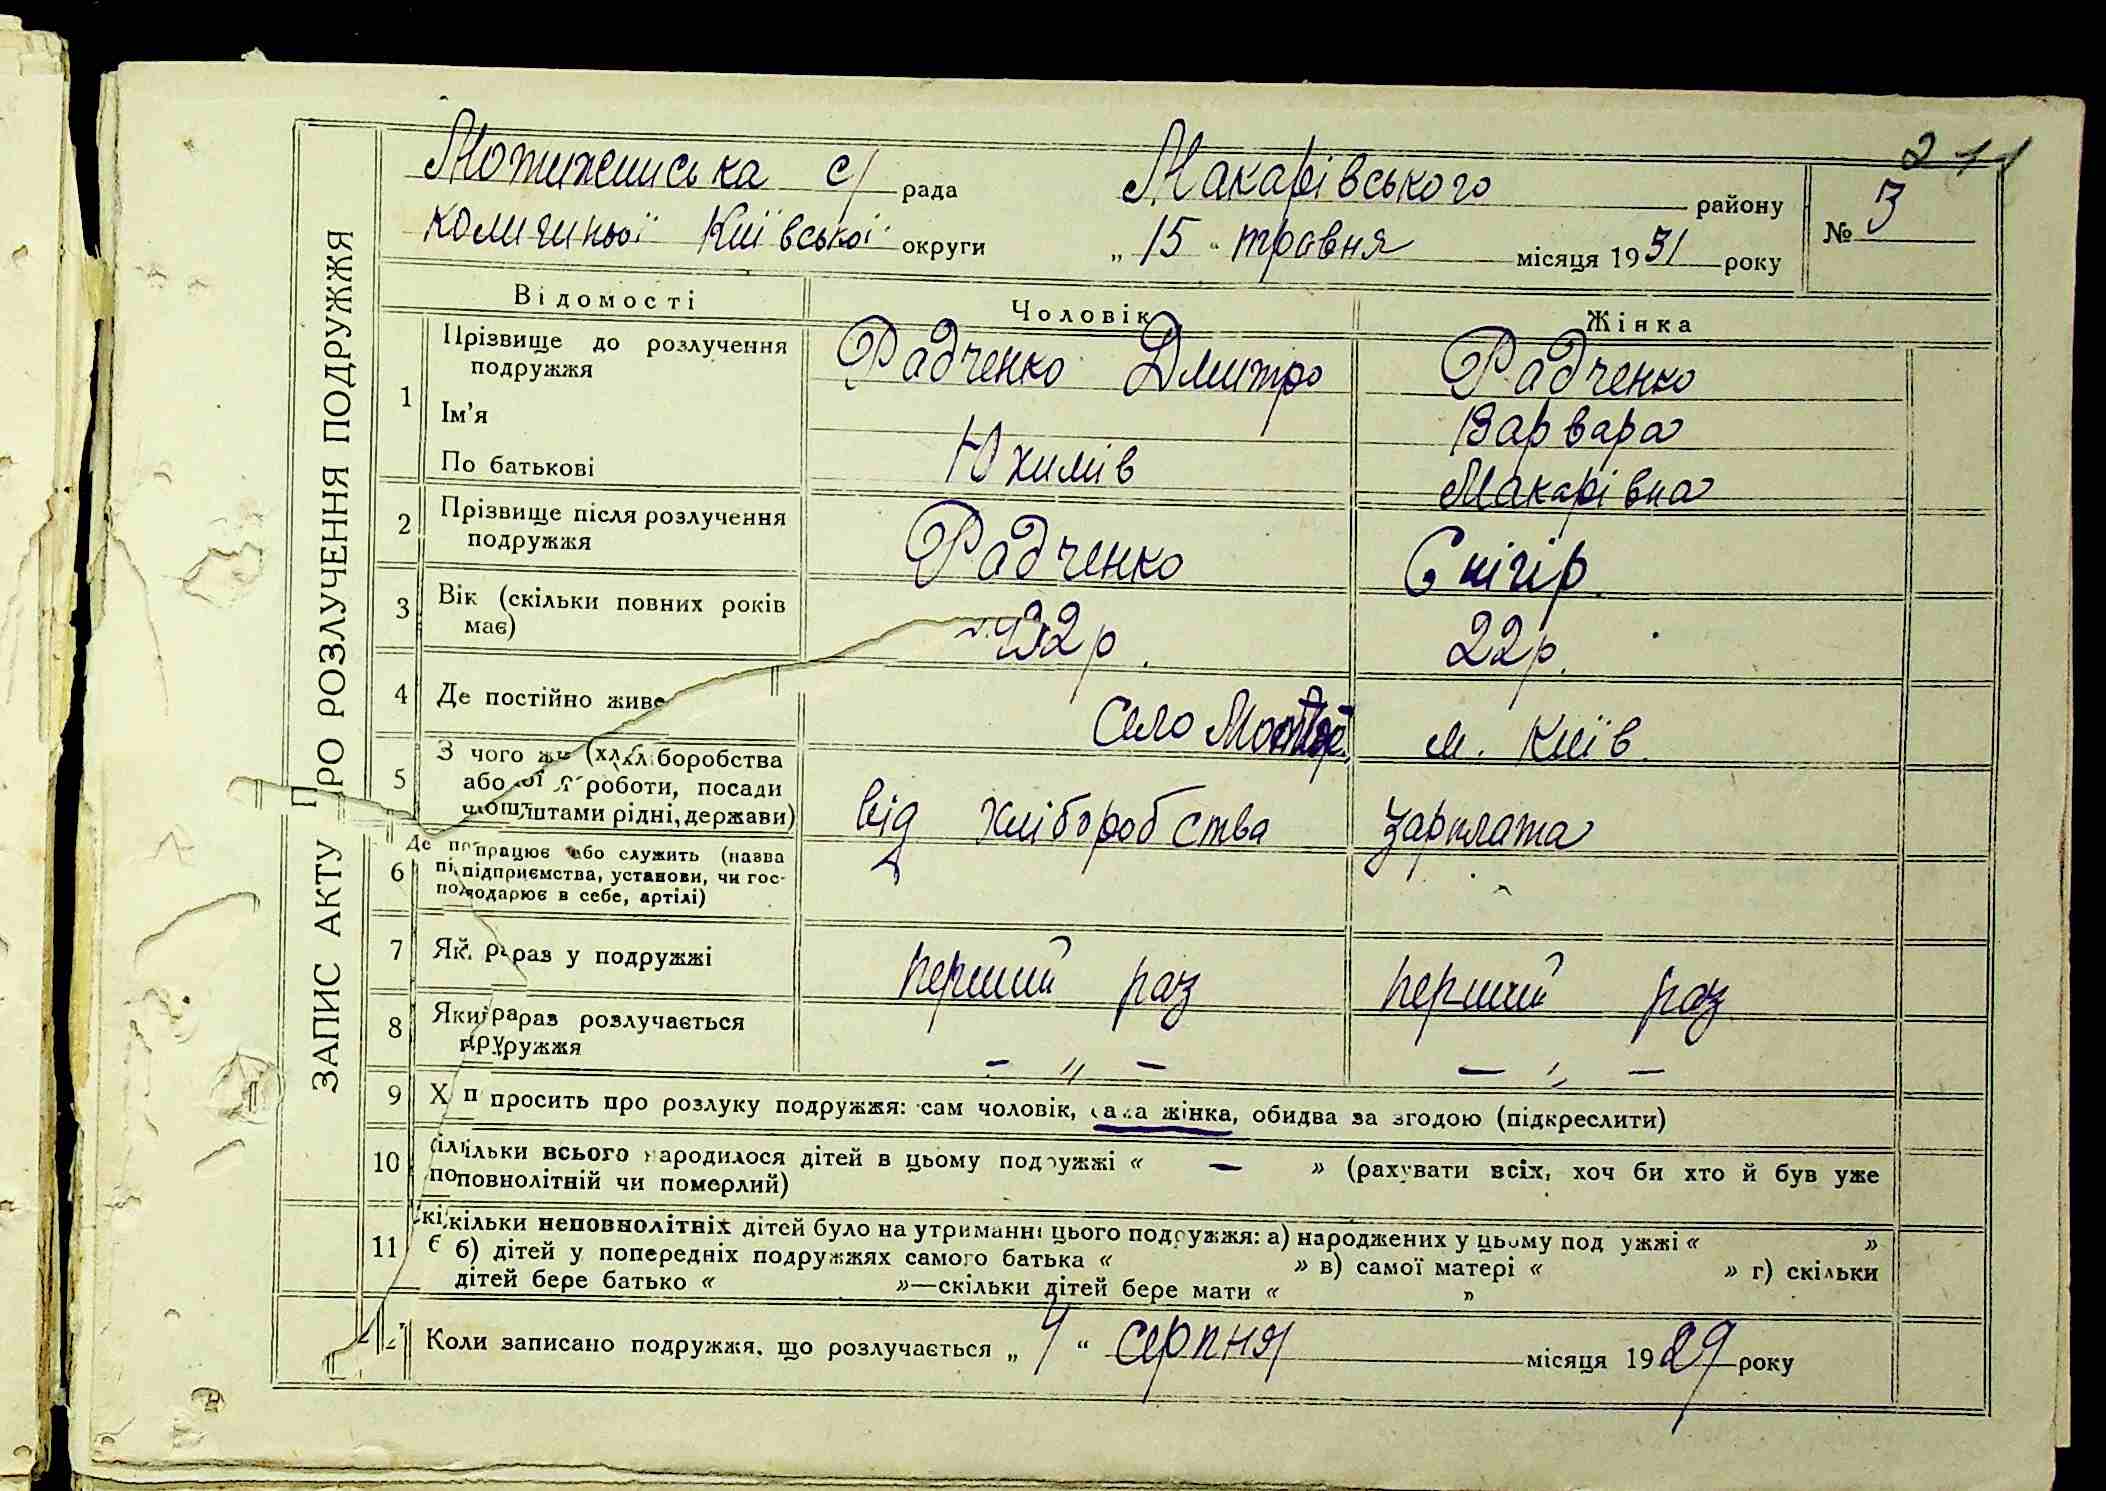 211
Мотижинська с/ рада Макарівського району № 3
колишньої Київської округи „ 15 “ травня місяця 1931 року
ЗАПИС АКТУ ПРО РОЗЛУЧЕННЯ ПОДРУЖЖЯ
Відомості Чоловік Жінка
1 Прізвище до розлучення подружжя Радченко Дмитро Радченко
Ім’я Варвара
По батькові Юхимів Макарівна
2 Прізвище після розлучення подружжя Радченко Снігір
3 Вік (скільки повних років має) 22р.
4 Де постійно живе село м. Київ
5 З чого жи (хліборобства
або роботи, посади
штами рідні, держави) від хліборобства зарплата
6 Де працює або служить (назва
підприємства, установи, чи гос-
подарює в себе, артілі)
7 Як. раз у подружжі перший раз перший раз
8 Який раз розлучається
подружжя – „ – – „ –
9 Х просить про розлуку подружжя: сам чоловік, сама жінка, обидва за згодою (підкреслити)
10 Скільки всього народилося дітей в цьому подружжі « – » (рахувати всіх, хоч би хто й був уже
повнолітній чи померлий)
11 Скільки неповнолітніх дітей було на утриманні цього подружжя: а) народжених у цьому подружжі « »
б) дітей у попередніх подружжях самого батька « » в) самої матері « » г) скільки
дітей бере батько « »—скільки дітей бере мати « »
12 Коли записано подружжя, що розлучається „ 4 “ серпня місяця 1929 року